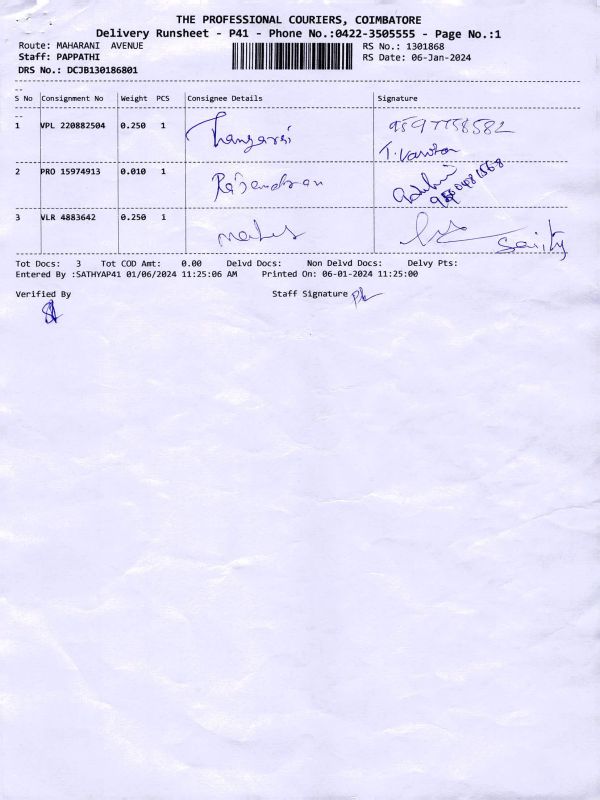 THE PROFESSIONAL COURIERS, COIMBATORE
Delivery Runsheet - P41 - Phone No.:0422-3505555 - Page No.:1
Route: MAHARANI AVENUE RS No.: 1301868
Staff: PAPPATHI RS Date: 06-Jan-2024
DRS No.: DCJB130186801
--
S No Consignment No Weight PCS Consignee Details Signature
--
1 VPL 220882504 0.250 1
2 PRO 15974913 0.010 1 Rajendran
3 VLR 4883642 0.250 1
Tot Docs: 3 Tot COD Amt: 0.00 Delvd Docs: Non Delvd Docs: Delvy Pts:
Entered By :SATHYAP41 01/06/2024 11:25:06 AM Printed On: 06-01-2024 11:25:00
Verified By Staff Signature